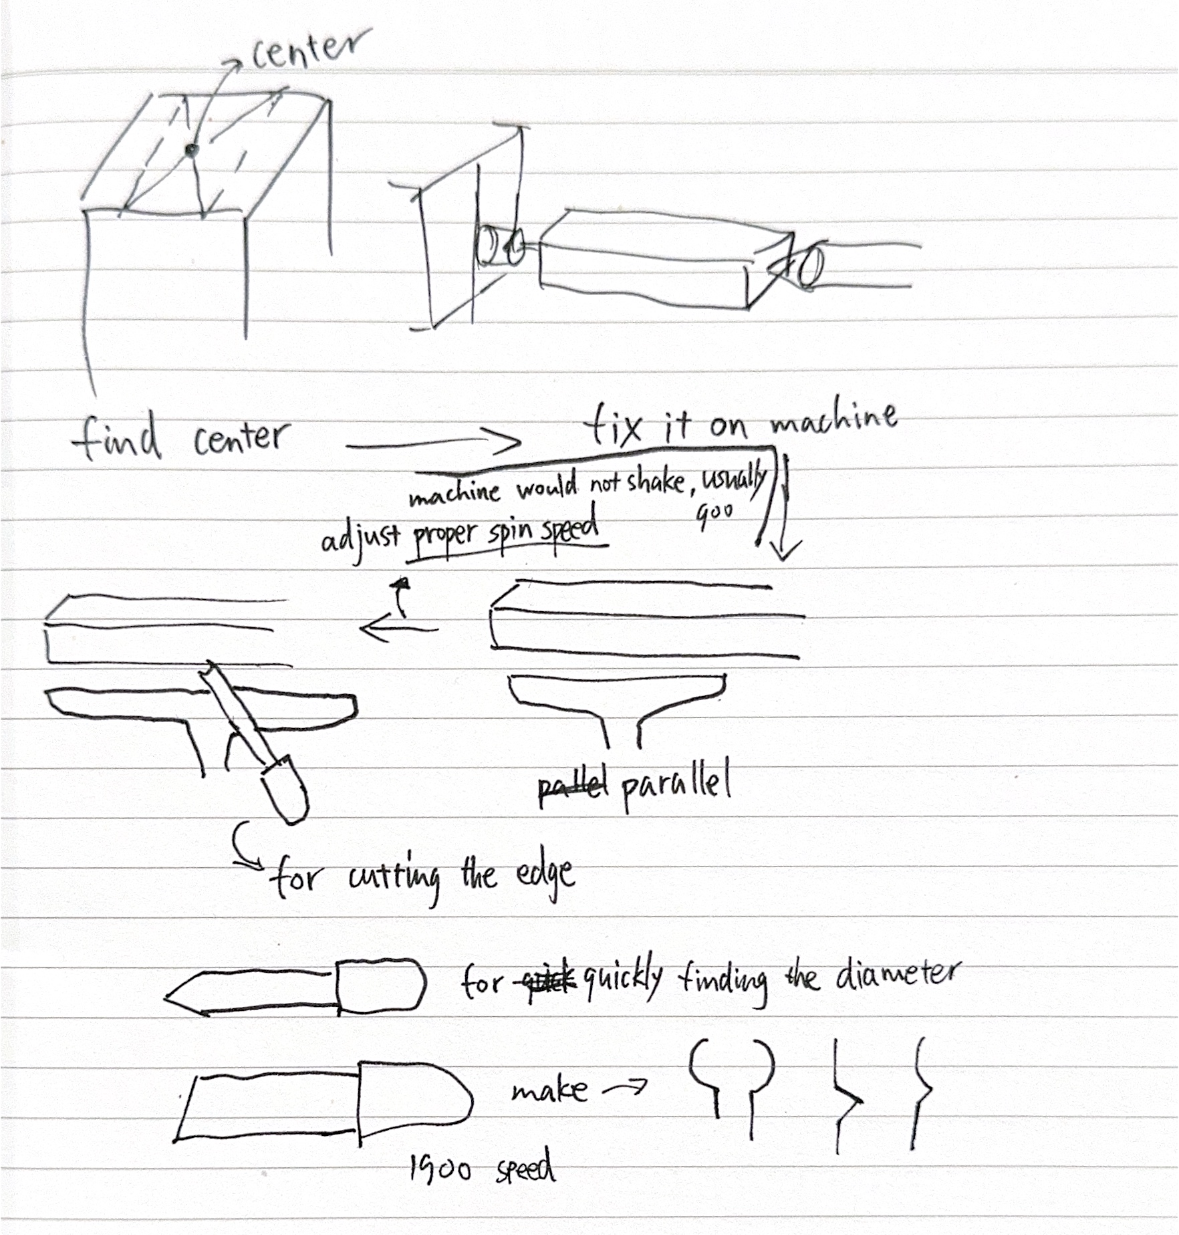 center
find center
fix it on machine
machine would not shake, usually
900
adjust proper spin speed
parallel
for cutting the edge
for quickly finding the diameter
make
1900 speed